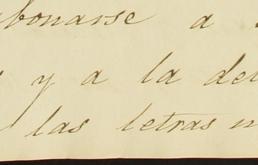 bonarse a
y a la de
las letras